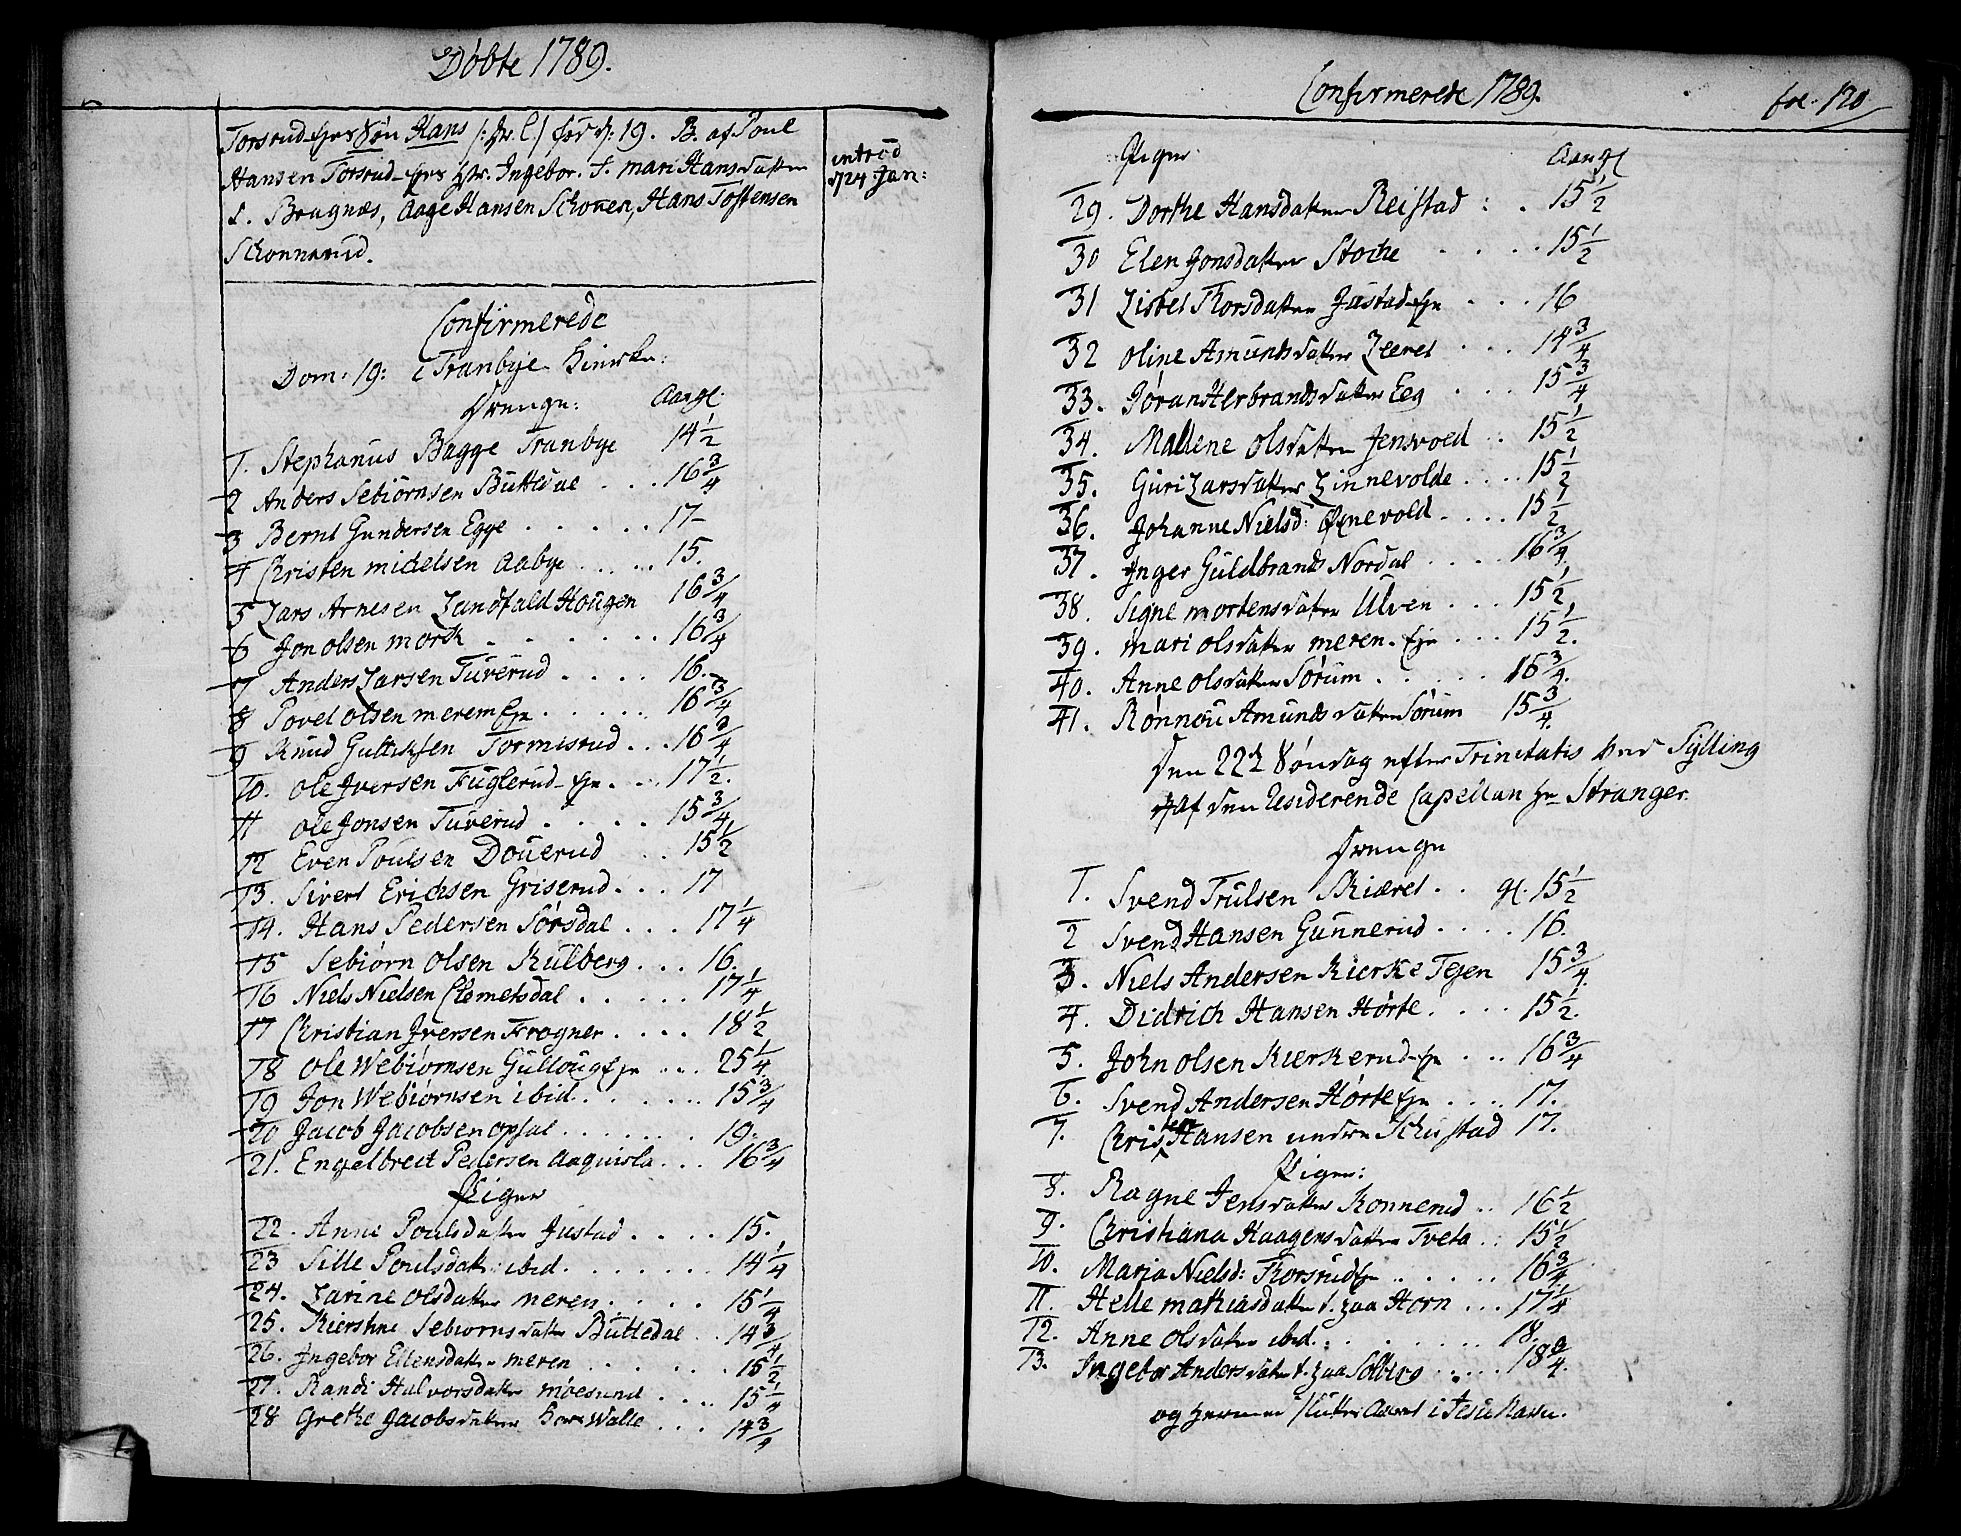 Döbte 1789.
Torsrud-Eyes Søn Hans fød d: 19. B. af Poul
Hansen Torsrud-Eyes Hstr. Ingebor. T. mari Hansdatter
S. Bragnæs, Aage Hansen Schouen, Hans Tostensen
Schonnerud.
introd
d 24 Jan:
Confirmerede
Dom: 19: i Tranbye Kircke:
Drenge: Aargl.
1. Stephanus Bagge Tranbye 14 1/2
2 Anders Sebiørnsen Buttedal . . . 16 3/4
3 Bernt Gundersen Egge . . . . . 17
4 Christen Michelsen Aabye . . . . . 15.
5 Lars Arnesen Landfald Hougen 16 3/4
6 Jon olsen morch . . . . . . 16 3/4
7 Anders Larsen Tuverud . . . . 16.
8 Povel olsen meren Eye . . . . . 16 3/4
9 Knud Gulliksen Tormisrud . . . 16 3/4
10. ole Iversen Fuglerud-Eye . . . 17 1/2.
11 ole Jonsen Tuverud . . . . 15 3/4
12 Even Poulsen Douerud . . 15 1/2
13. Sivert Erichsen Griserud . . . 17
14. Hans Pedersen Sørsdal . . . 17 1/4
15 Sebiørn olsen Kulberg . . . 16.
16 Niels Nielsen Clemetsdal . . . . . 17 1/4
17 Christian Iversen Frogner . . . . 18 1/2
18 ole Webiørnsen Gulloug Eye . . . 25 1/4
19 Jon Webiørnsen ibid. . . . . . . 15 3/4
20 Jacob Jacobsen opsal . . . . . . . 19.
21. Engelbrect Pedersen Aaquisla . . . 16 3/4
Piger
22. Anne Poulsdatter Justad . . . . 15.
23 Sille Poulsdatt: ibid. . . . . . . 14 1/4
24. Larine olsdatter meren . . . . . 15 1/4
25. Kierstine Sebiørnsdatter Buttedal . . 14 3/4
26. Ingebor Ellensdatter meren . . . . . . 15 1/2
27. Randi Halvorsdatter møesund . . . . 15 1/4
28 Grethe Jacobsdatter Walle . . . 14 3/4
Confirmerede 1789.
fol. 120
Piger. Aargl
29. Dorthe Hansdatter Reistad : . 15 1/2
30 Elen Jonsdatter Stoche . . . . 15 1/2
31 Lisbet Thorsdatter Justad-Eye . . . 16
32 oline Amundsdatter Leeret . . . 14 3/4
33. Jøran Herbrandsdatter Eeg . . . 15 3/4
34. Mallene olsdatter Jensvold . . 15 1/2
35. Guri Larsdatter Linnevolde . . . . 15 1/2
36. Johanne Nielsd: Øfnevold . . . . 15 1/2
37. Inger Guldbrands Nordal . . . . 16 3/4.
38. Signe mortensdatter Ulven . . . 15 1/2
39. mari olsdatter meren-Eye . . . 15 1/2.
40. Anne olsdatter Sørum . . . . . . 16 3/4.
41. Rønnou Amundsdatter Sørum 15 3/4.
Den 22de Søndag efter Trinitatis ved Sylling
af den Residerende Capellan Hr Stranger.
Drenge
1. Svend Trulsen Skiæret . . gl. 15 1/2
2 Svend Hansen Gunnerud . . . . 16.
3. Niels Andersen Kierke Tegen 15 3/4.
4. Didrich Hansen Hørte . . . . 15 1/2.
5. John olsen Kierkerud-Eye . . . 16 3/4
6. Svend Andersen Hørte Eye . . . . 17.
7. Christen Hansen undre Schustad 17.
Piger:
8. Ragne Jensdatter Konnerud . . 16 1/2
9. Christiana Haagensdatter Tveta . : 15 1/2
10. Maria Nielsd: Thorsrud Eye . . . . . . 16 3/4.
11. Helle mathiasdatter t. paa Horn . . . 17 1/4
12. Anne olsdatter ibid. . . . . . . 18.
13. Ingebor Andersdatter t. paa Solberg . . . . . 18 3/4.
og hermed sluttes Aaret i Jesu Navn.